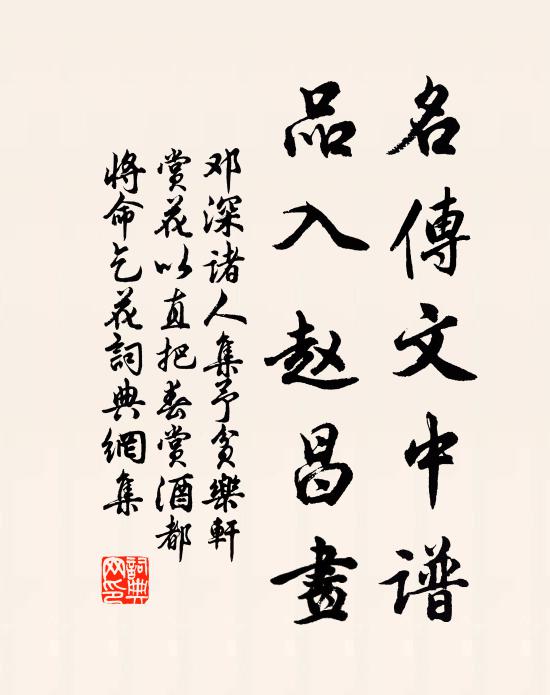 名傳文中谱
品入赵昌畫
邓深诸人集予贫樂軒
赏花以直把春赏酒都
將命乞花詞典網集
詞典网印